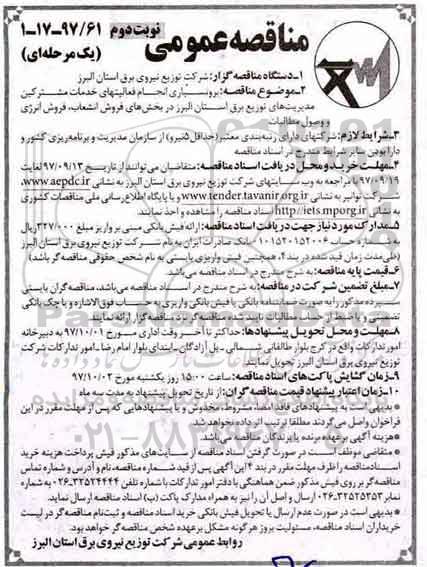 مناقصه عمومی
نوبت دوم
۱-۱۷-۹۷/۶۱
(یک مرحله‌ای)
۱-دستگاه مناقصه گزار: شرکت توزیع نیروی برق استان البرز
۲-موضوع مناقصه: برونسپاری انجام فعالیتهای خدمات مشترکین
مدیریت‌های توزیع برق استان البرز در بخش‌های فروش انشعاب، فروش انرژی
و وصول مطالبات
۳-شرایط لازم: شرکتهای دارای رتبه‌بندی معتبر (حداقل ۵نیرو) از سازمان مدیریت و برنامه‌ریزی کشور و
دارا بودن سایر شرایط مندرج در اسناد مناقصه
۴-مهلت خرید و محل دریافت اسناد مناقصه: متقاضیان می‌توانند از تاریخ ۹۷/۰۹/۱۳ لغایت
۹۷/۰۹/۱۹ با مراجعه به وب سایتهای شرکت توزیع نیروی برق استان البرز به نشانی www.aepdc.ir،
شرکت توانیر به نشانی www.tender.tavanir.org.ir و یا پایگاه اطلاع‌رسانی ملی مناقصات کشوری
به نشانی http://iets.mporg.ir اسناد مناقصه را مشاهده و اخذ نمایند.
۵-مدارک مورد نیاز جهت دریافت اسناد مناقصه: ارائه فیش بانکی مبنی بر واریز مبلغ ۳۲۷/۰۰۰ ریال
شماره حساب ۰۱۰۱۵۲۰۱۵۲۰۰۶ بانک صادرات ایران به نام شرکت توزیع نیروی برق استان البرز
(طی مدت زمان قید شده در بند ۴، همچنین فیش واریزی بایستی به نام شخص حقوقی مناقصه گر باشد)
۶-قیمت پایه مناقصه: به شرح مندرج در اسناد مناقصه می‌باشد.
۷-مبلغ تضمین شرکت در مناقصه: به شرح مندرج در اسناد مناقصه می‌باشد، مناقصه گران بایستی
سپرده مذکور را به صورت ضمانتنامه بانکی یا فیش بانکی واریزی به حساب فوق الاشاره و یا چک بانکی
تضمینی و یا ضبط از حساب مطالبات تایید شده مناقصه گر نزد مناقصه گزار ارائه نمایند.
۸-مهلت و محل تحویل پیشنهادها: حداکثر تا آخر وقت اداری مورخ ۹۷/۱۰/۰۱ به دبیرخانه
امور تدارکات واقع در کرج بلوار طالقانی شمالی-پل آزادگان-ابتدای بلوار امام رضا-امور تدارکات شرکت
توزیع نیروی برق استان البرز تحویل نمایند.
۹-زمان گشایش پاکت‌های اسناد مناقصه: ساعت ۱۵:۰۰ روز یکشنبه مورخ ۹۷/۱۰/۰۲
۱۰-زمان اعتبار پیشنهاد قیمت مناقصه گران: از تاریخ تحویل پیشنهاد به مدت سه ماه
* بدیهی است به پیشنهادهای فاقد امضاء، مشروط، مخدوش و یا پیشنهادهایی که پس از مهلت مقرر در این
فراخوان واصل می‌گردند مطلقا ترتیب اثر داده نخواهد شد.
* هزینه آگهی بر عهده برنده یا برندگان مناقصه می‌باشد.
* متقاضی موظف است در صورت گرفتن اسناد مناقصه از سایت‌های مذکور فیش پرداخت هزینه خرید
اسناد مناقصه را ظرف مهلت مقرر در بند ۴ این آگهی پس از قید شماره مناقصه، نام و آدرس و شماره تماس
مناقصه گر بر روی فیش مذکور ضمن هماهنگی با دفتر امور تدارکات با شماره تلفن ۳۲۵۲۴۴۴۴-۰۲۶ به
نمابر ۳۲۵۲۵۲۵۳-۰۲۶ ارسال و اصل آن را نیز به همراه مدارک پاکت (ب) اسناد مناقصه ارسال نماید.
* بدیهی است در صورت عدم ارسال یا تحویل فیش بانکی خرید اسناد مناقصه و ثبت نام مناقصه گر در لیست
خریداران اسناد مناقصه، مسئولیت بروز هر گونه مشکل بر عهده شخص مناقصه گر خواهد بود.
روابط عمومی شرکت توزیع نیروی برق استان البرز